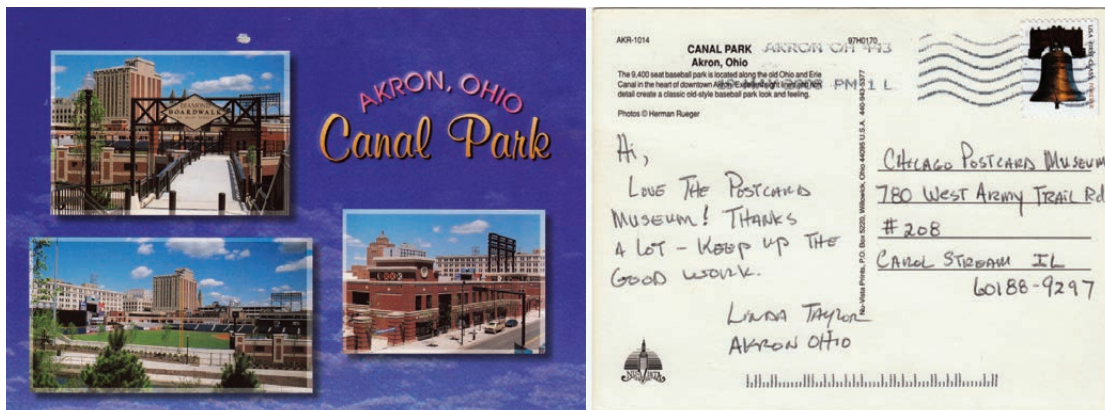 DIAMOND
BOARDWALK
AKRON, OHIO
Canal Park
AKR-1014
97H0170
CANAL PARK
Akron, Ohio
The 9,400 seat baseball park is located along the old Ohio and Erie
Canal in the heart of downtown Akron. Excellent sight lines and rich
detail create a classic old-style baseball park look and feeling.
Photos © Herman Rueger
AKRON OH 443
PM 1 L
USA FIRST-CLASS FOREVER
Nu-Vista Prints, P.O. Box 5220, Willowick, Ohio 44095 U.S.A. 440-943-5377
Hi,
LOVE THE POSTCARD
MUSEUM! THANKS
A LOT - KEEP UP THE
GOOD WORK.
LINDA TAYLOR
AKRON OHIO
CHICAGO POSTCARD MUSEUM
780 WEST ARMY TRAIL Rd
#208
CAROL STREAM IL
60188-9297
NU-VISTA